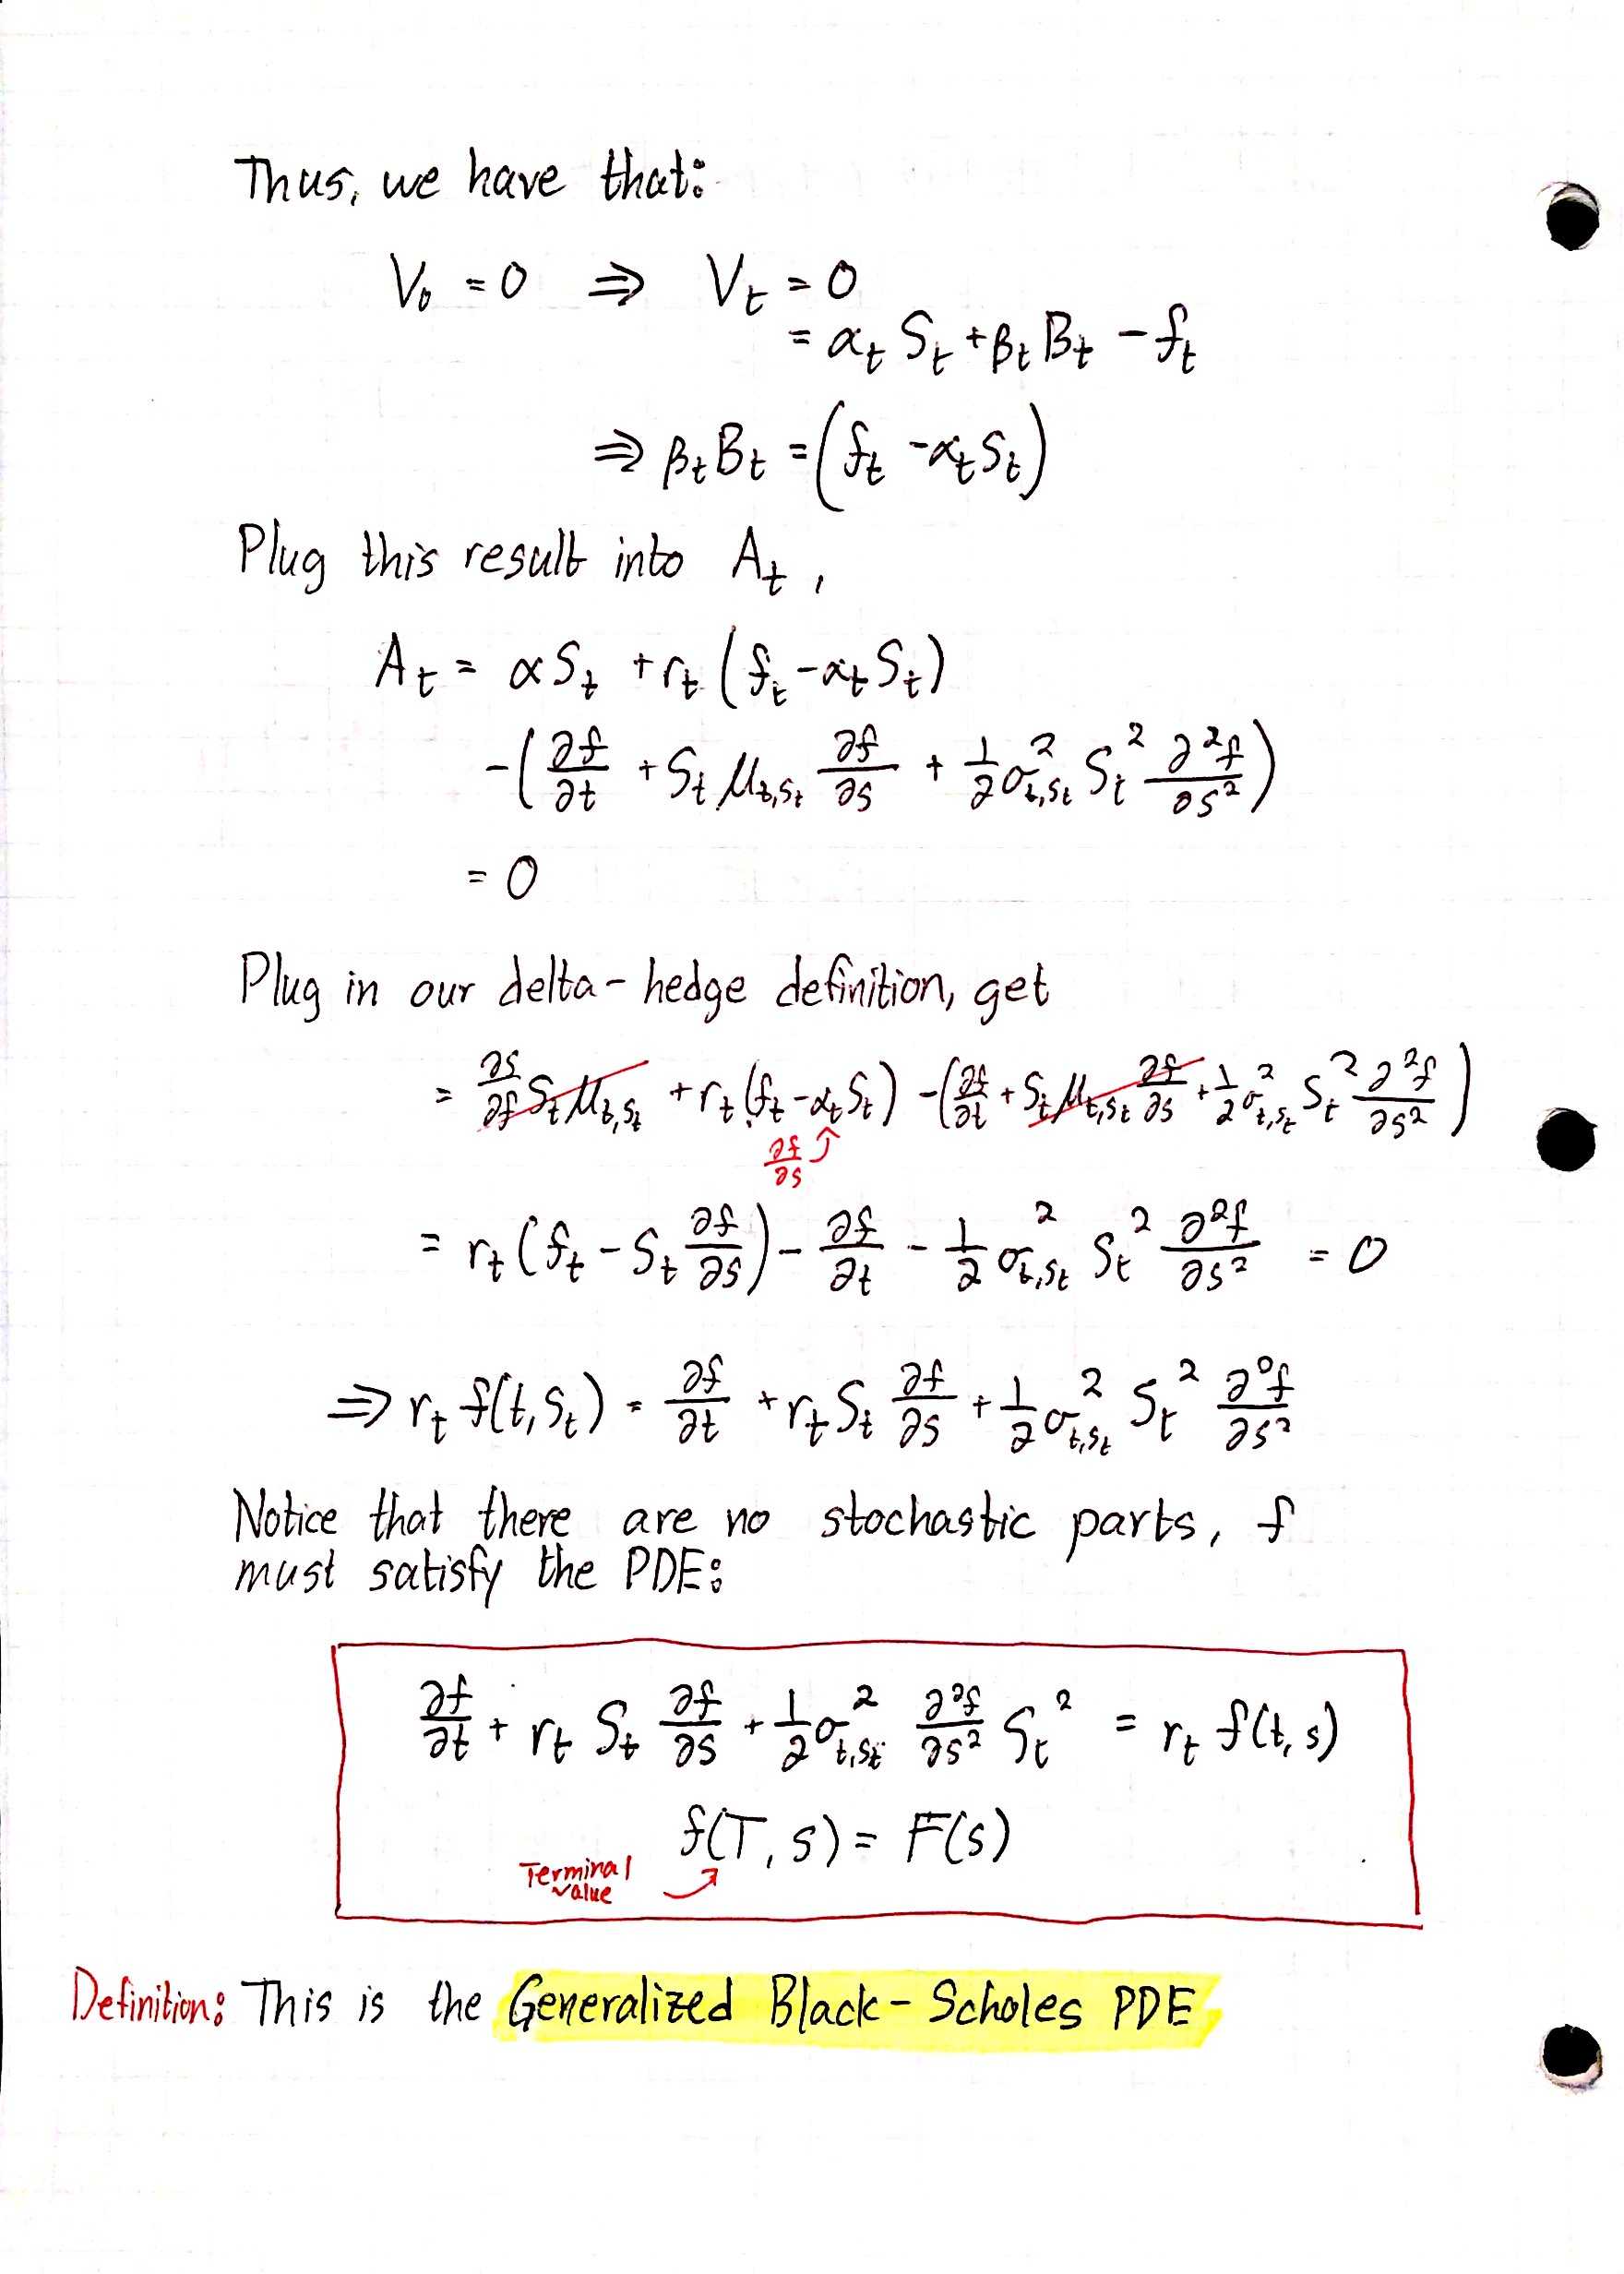 Thus, we have that:
V₀ = 0 ⇒ V_t = 0
= α_t S_t + β_t B_t − f_t
⇒ β_t B_t = (f_t − α_t S_t)
Plug this result into A_t,
A_t = α S_t + r_t (f_t − α_t S_t)
−(∂f/∂t + S_t μ_{t,S_t} ∂f/∂s + 1/2 σ²_{t,S_t} S_t² ∂²f/∂s²)
= 0
Plug in our delta-hedge definition, get
= ∂s/∂f S_t μ_{t,S_t} + r_t (f_t − α_t S_t) − (∂f/∂t + S_t μ_{t,S_t} ∂f/∂s + 1/2 σ²_{t,S_t} S_t² ∂²f/∂s²)
∂f/∂s
= r_t (f_t − S_t ∂f/∂s) − ∂f/∂t − 1/2 σ²_{t,S_t} S_t² ∂²f/∂s² = 0
⇒ r_t f(t, S_t) = ∂f/∂t + r_t S_t ∂f/∂s + 1/2 σ²_{t,S_t} S_t² ∂²f/∂s²
Notice that there are no stochastic parts, f
must satisfy the PDE:
∂f/∂t + r_t S_t ∂f/∂s + 1/2 σ²_{t,S_t} ∂²f/∂s² S_t² = r_t f(t, s)
f(T, s) = F(s)
Terminal
value
Definition: This is the Generalized Black-Scholes PDE